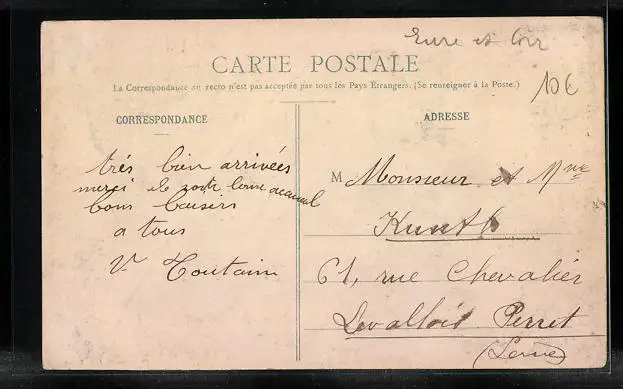 Eure et Loir
CARTE POSTALE
10€
La Correspondance au recto n'est pas acceptée par tous les Pays Étrangers. (Se renseigner à la Poste.)
CORRESPONDANCE
très bien arrivées
merci de accueil
bons baisers
a tous
V. Toutain
ADRESSE
M Monsieur et Mme
Kunth
61, rue Chevalier
Levallois Perret
(Seine)